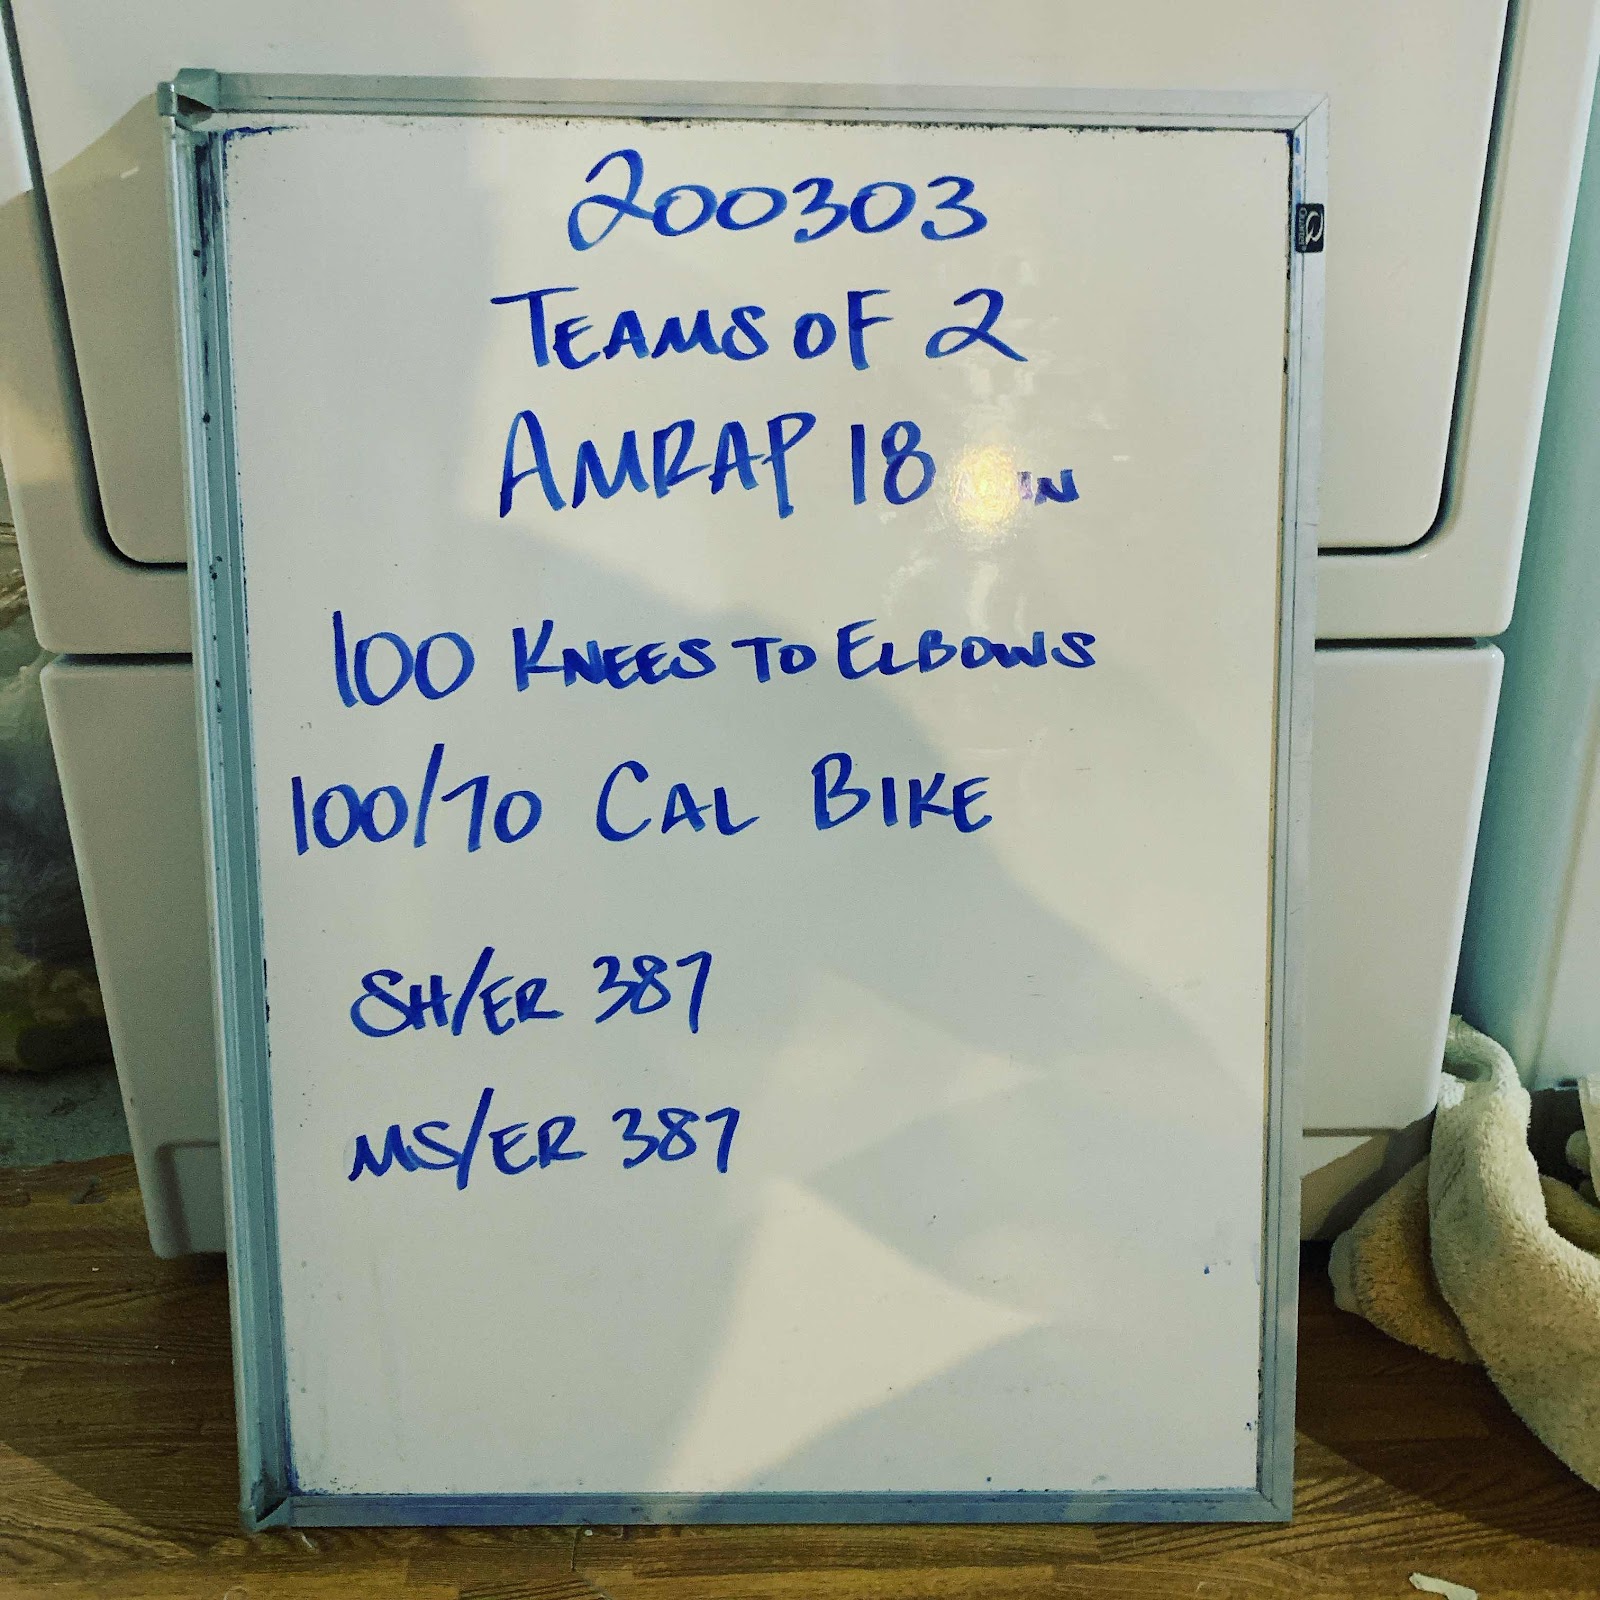 200303
TEAMS OF 2
AMRAP 18 MIN
100 KNEES TO ELBOWS
100/70 CAL BIKE
SH/ER 387
MS/ER 387